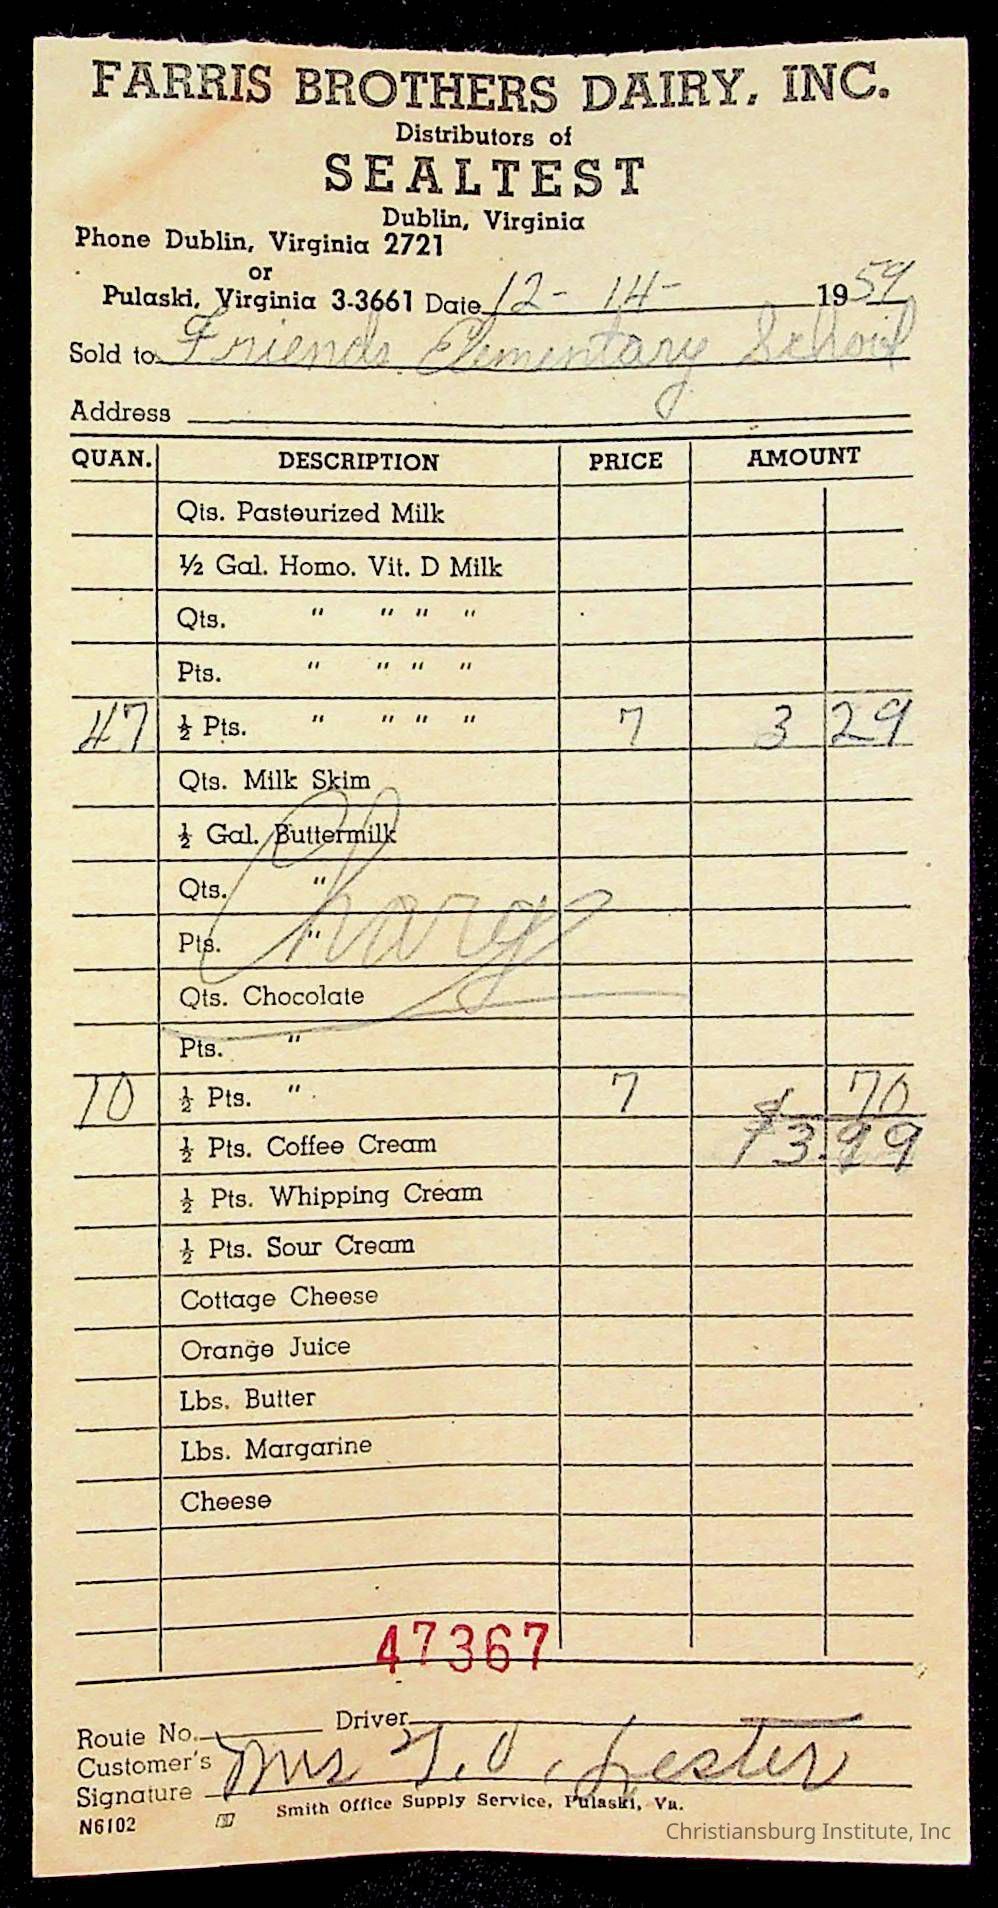 FARRIS BROTHERS DAIRY, INC.
Distributors of
SEALTEST
Dublin, Virginia
Phone Dublin, Virginia 2721
or
Pulaski, Virginia 3-3661 Date 12-14- 1959
Sold to Friends Elementary School
Address
QUAN. DESCRIPTION PRICE AMOUNT
Qts. Pasteurized Milk
½ Gal. Homo. Vit. D Milk
Qts. " " " "
Pts. " " " "
47 ½ Pts. " " " " 7 3 29
Qts. Milk Skim
½ Gal. Buttermilk
Qts. "
Charg
Pts. "
Qts. Chocolate
Pts. "
10 ½ Pts. " 7 70
½ Pts. Coffee Cream $3.99
½ Pts. Whipping Cream
½ Pts. Sour Cream
Cottage Cheese
Orange Juice
Lbs. Butter
Lbs. Margarine
Cheese
47367
Route No. Driver
Customer's
Signature Mrs T.O. Lester
Smith Office Supply Service, Pulaski, Va.
N6102
Christiansburg Institute, Inc